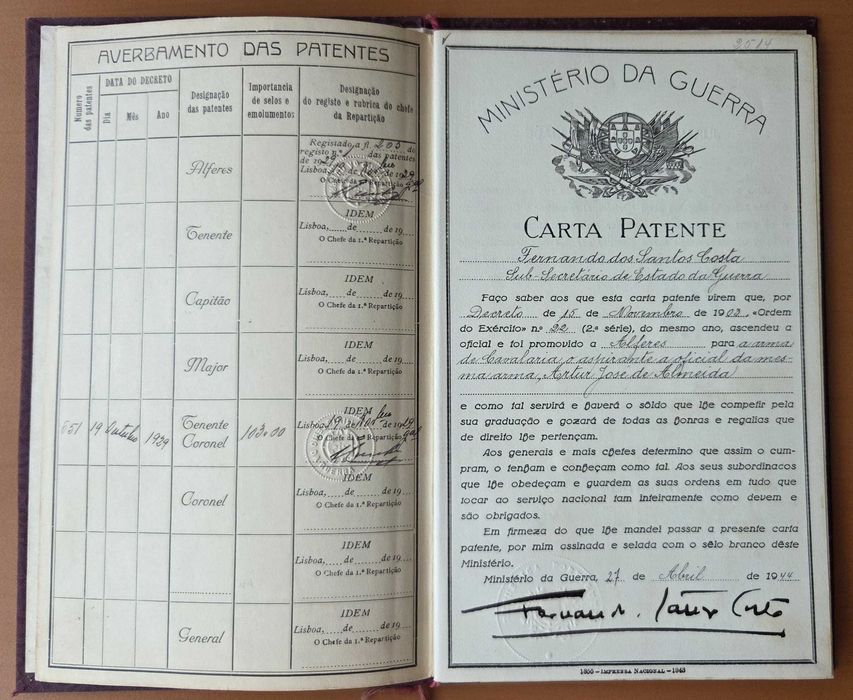 AVERBAMENTO DAS PATENTES
Numero das patentes
DATA DO DECRETO
Dia
Mês
Ano
Designação das patentes
Importancia de selos e emolumentos
Designação do registo e rubrica do chefe da Repartição
Alferes
Registado a fl. 203 do
registo n.º das patentes
de 19
Lisboa, de de 19
O Chefe da 1.ª Repartição
Tenente
IDEM
Lisboa, de de 19
O Chefe da 1.ª Repartição
Capitão
IDEM
Lisboa, de de 19
O Chefe da 1.ª Repartição
Major
IDEM
Lisboa, de de 19
O Chefe da 1.ª Repartição
651 19 Outubro 1939
Tenente Coronel
103.00
IDEM
Lisboa, 19 de de 19
O Chefe da 1.ª Repartição
Coronel
IDEM
Lisboa, de de 19
O Chefe da 1.ª Repartição
IDEM
Lisboa, de de 19
O Chefe da 1.ª Repartição
General
IDEM
Lisboa, de de 19
O Chefe da 1.ª Repartição
2514
MINISTÉRIO DA GUERRA
CARTA PATENTE
Fernando dos Santos Costa
Sub-Secretário de Estado da Guerra
Faço saber aos que esta carta patente virem que, por
Decreto de 15 de Novembro de 1902 «Ordem
do Exército» n.º 22 (2.ª série), do mesmo ano, ascendeu a
oficial e foi promovido a Alferes para a arma
de Cavalaria, o aspirante a oficial da mes-
ma arma, Artur José de Almeida
e como tal servirá e haverá o sôldo que lhe competir pela
sua graduação e gozará de todas as honras e regalias que
de direito lhe pertençam.
Aos generais e mais chefes determino que assim o cum-
pram, o tenham e conheçam como tal. Aos seus subordinados
que lhe obedeçam e guardem as suas ordens em tudo que
tocar ao serviço nacional tam inteiramente como devem e
são obrigados.
Em firmeza do que lhe mandei passar a presente carta
patente, por mim assinada e selada com o sêlo branco dêste
Ministério.
Ministério da Guerra, 27 de Abril de 1944
Fernando Santos Costa
1850 - IMPRENSA NACIONAL - 1943